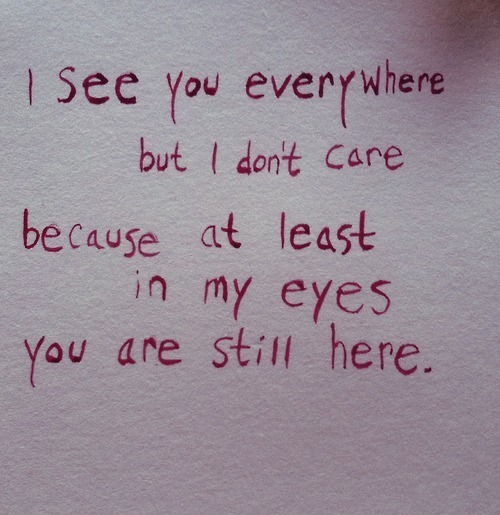 I see you everywhere
but I don't care
because at least
in my eyes
you are still here.